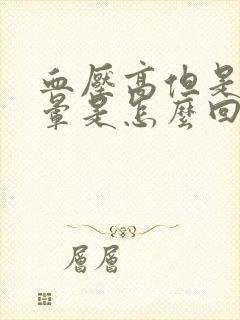 血壓高但是
暈是怎麼回
層層